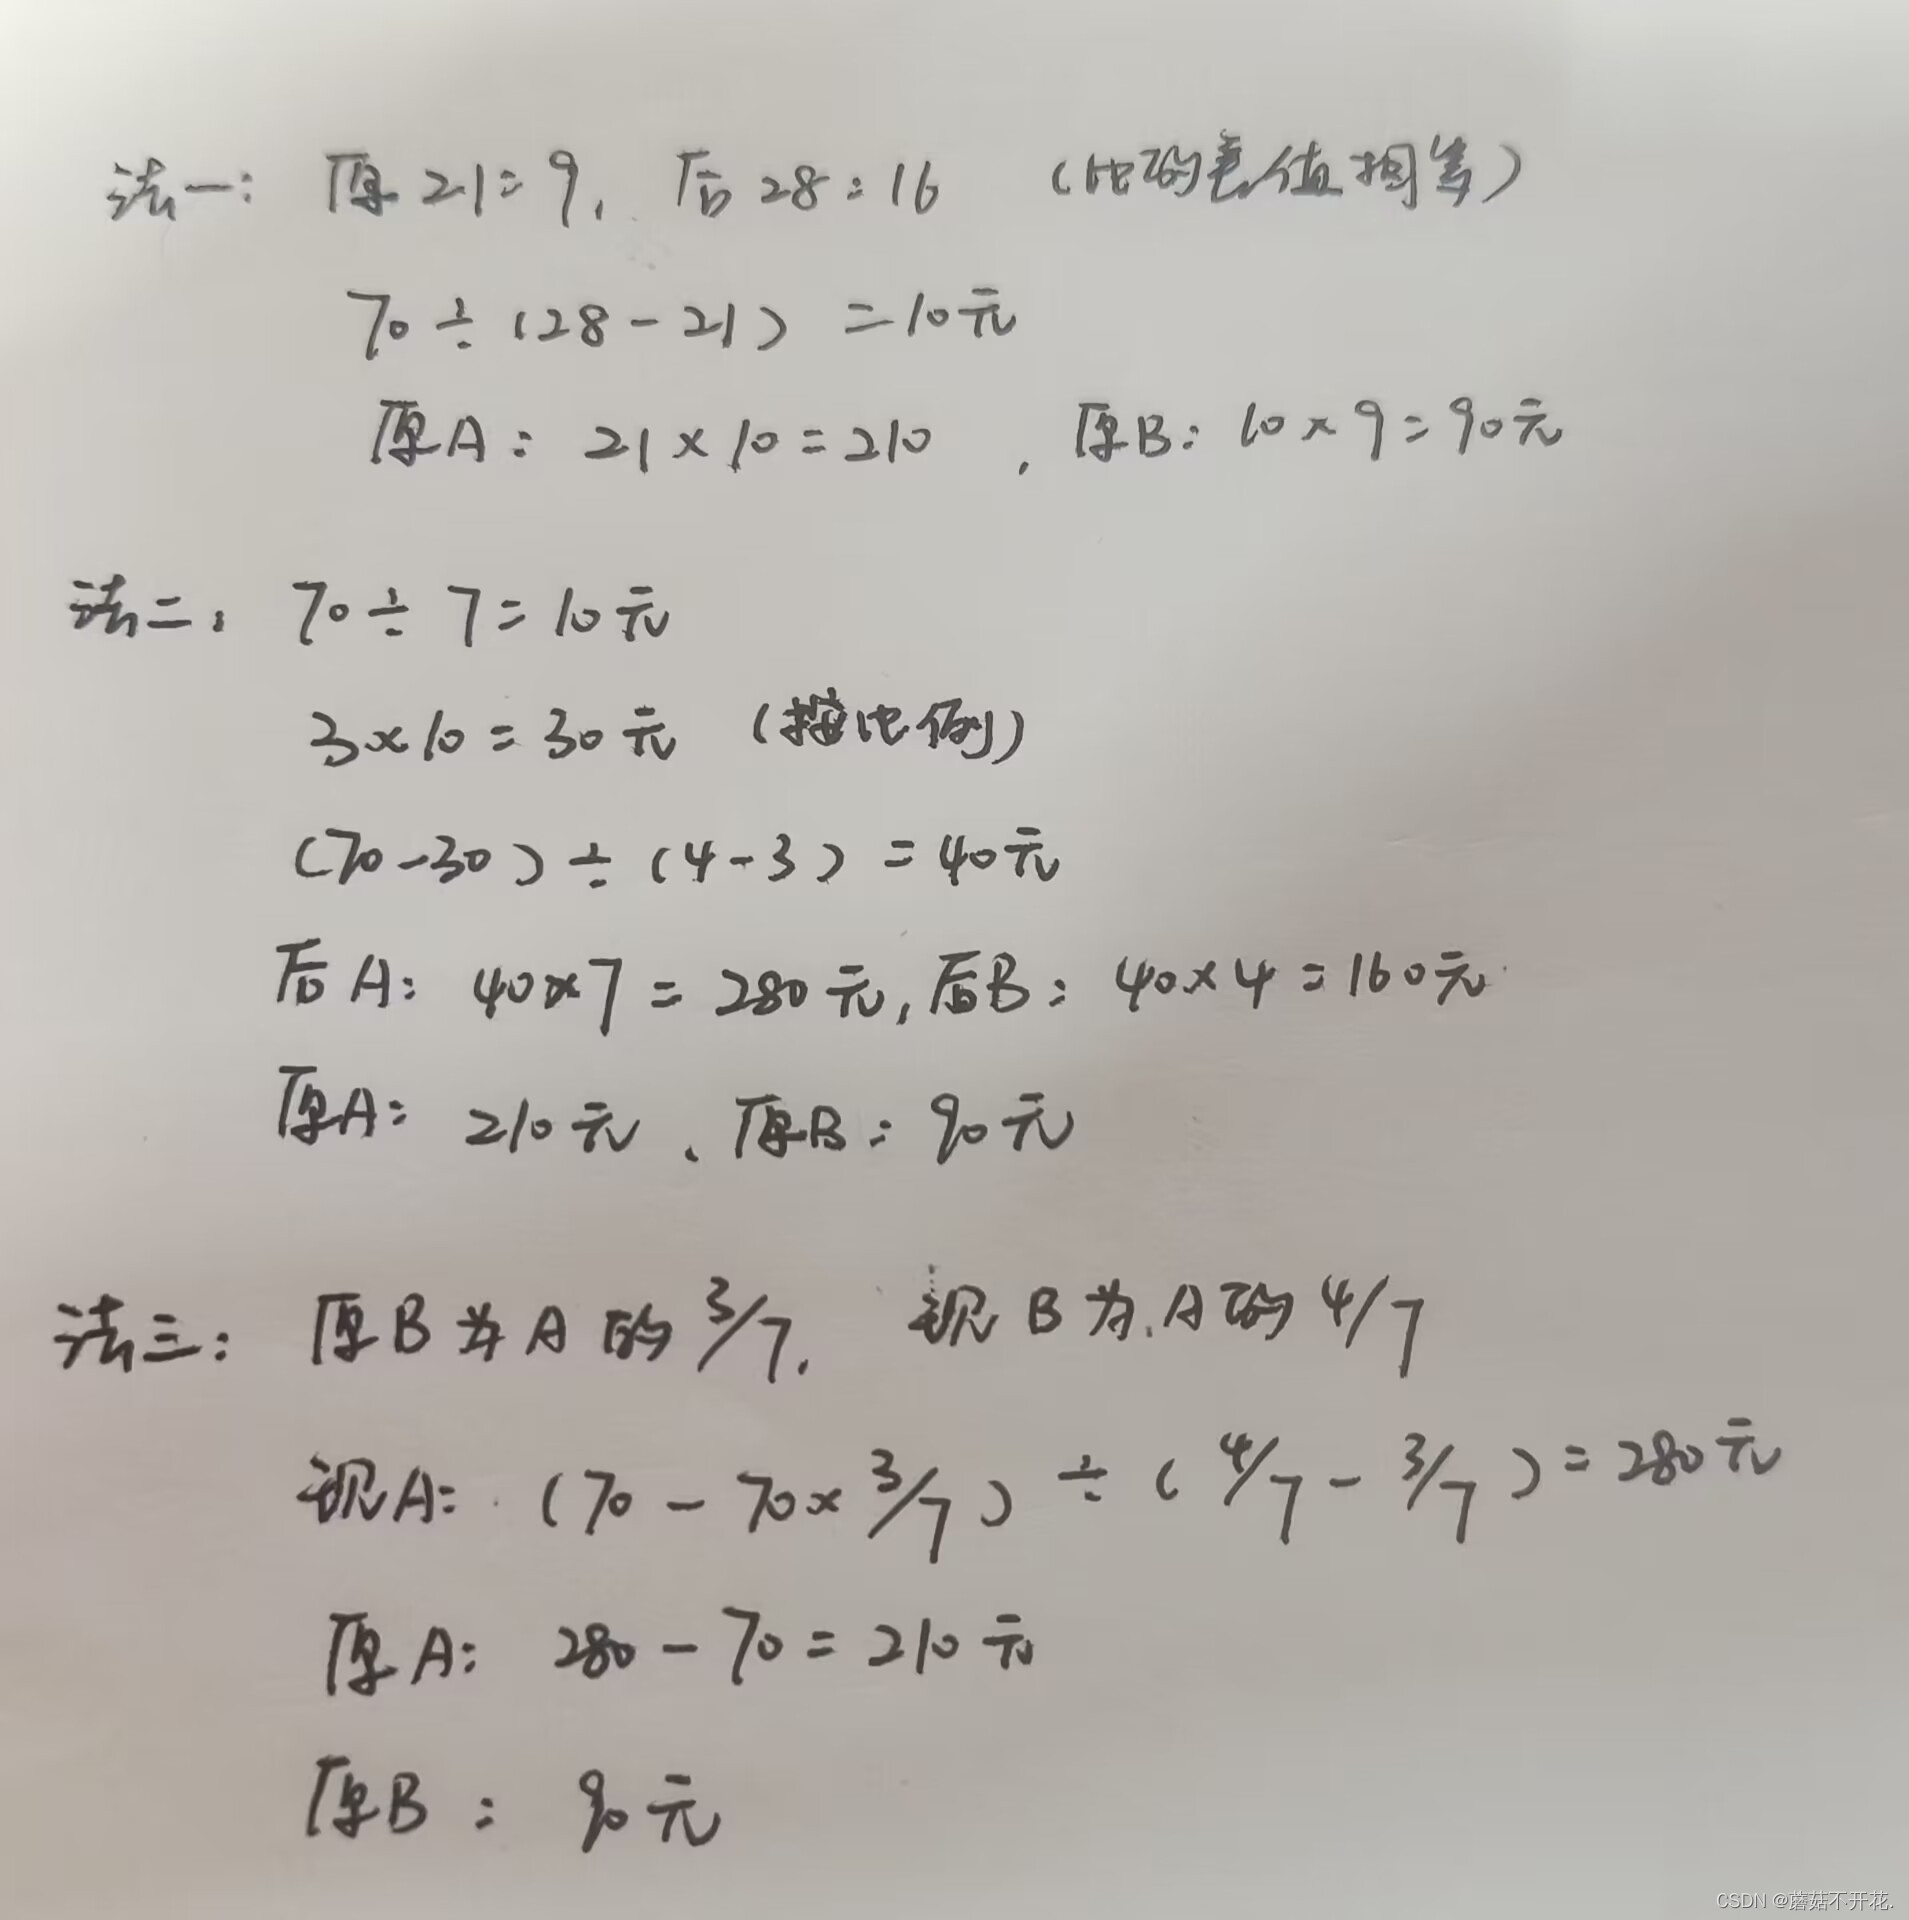 法一: 原21:9, 后28:16 (比的差值相等)
70÷(28-21)=10元
原A: 21×10=210, 原B: 10×9=90元
法二: 70÷7=10元
3×10=30元 (按比例)
(70-30)÷(4-3)=40元
后A: 40×7=280元, 后B: 40×4=160元
原A: 210元、原B: 90元
法三: 原B为A的3/7, 现B为A的4/7
现A: (70-70×3/7)÷(4/7-3/7)=280元
原A: 280-70=210元
原B: 90元
CSDN @蘑菇不开花.